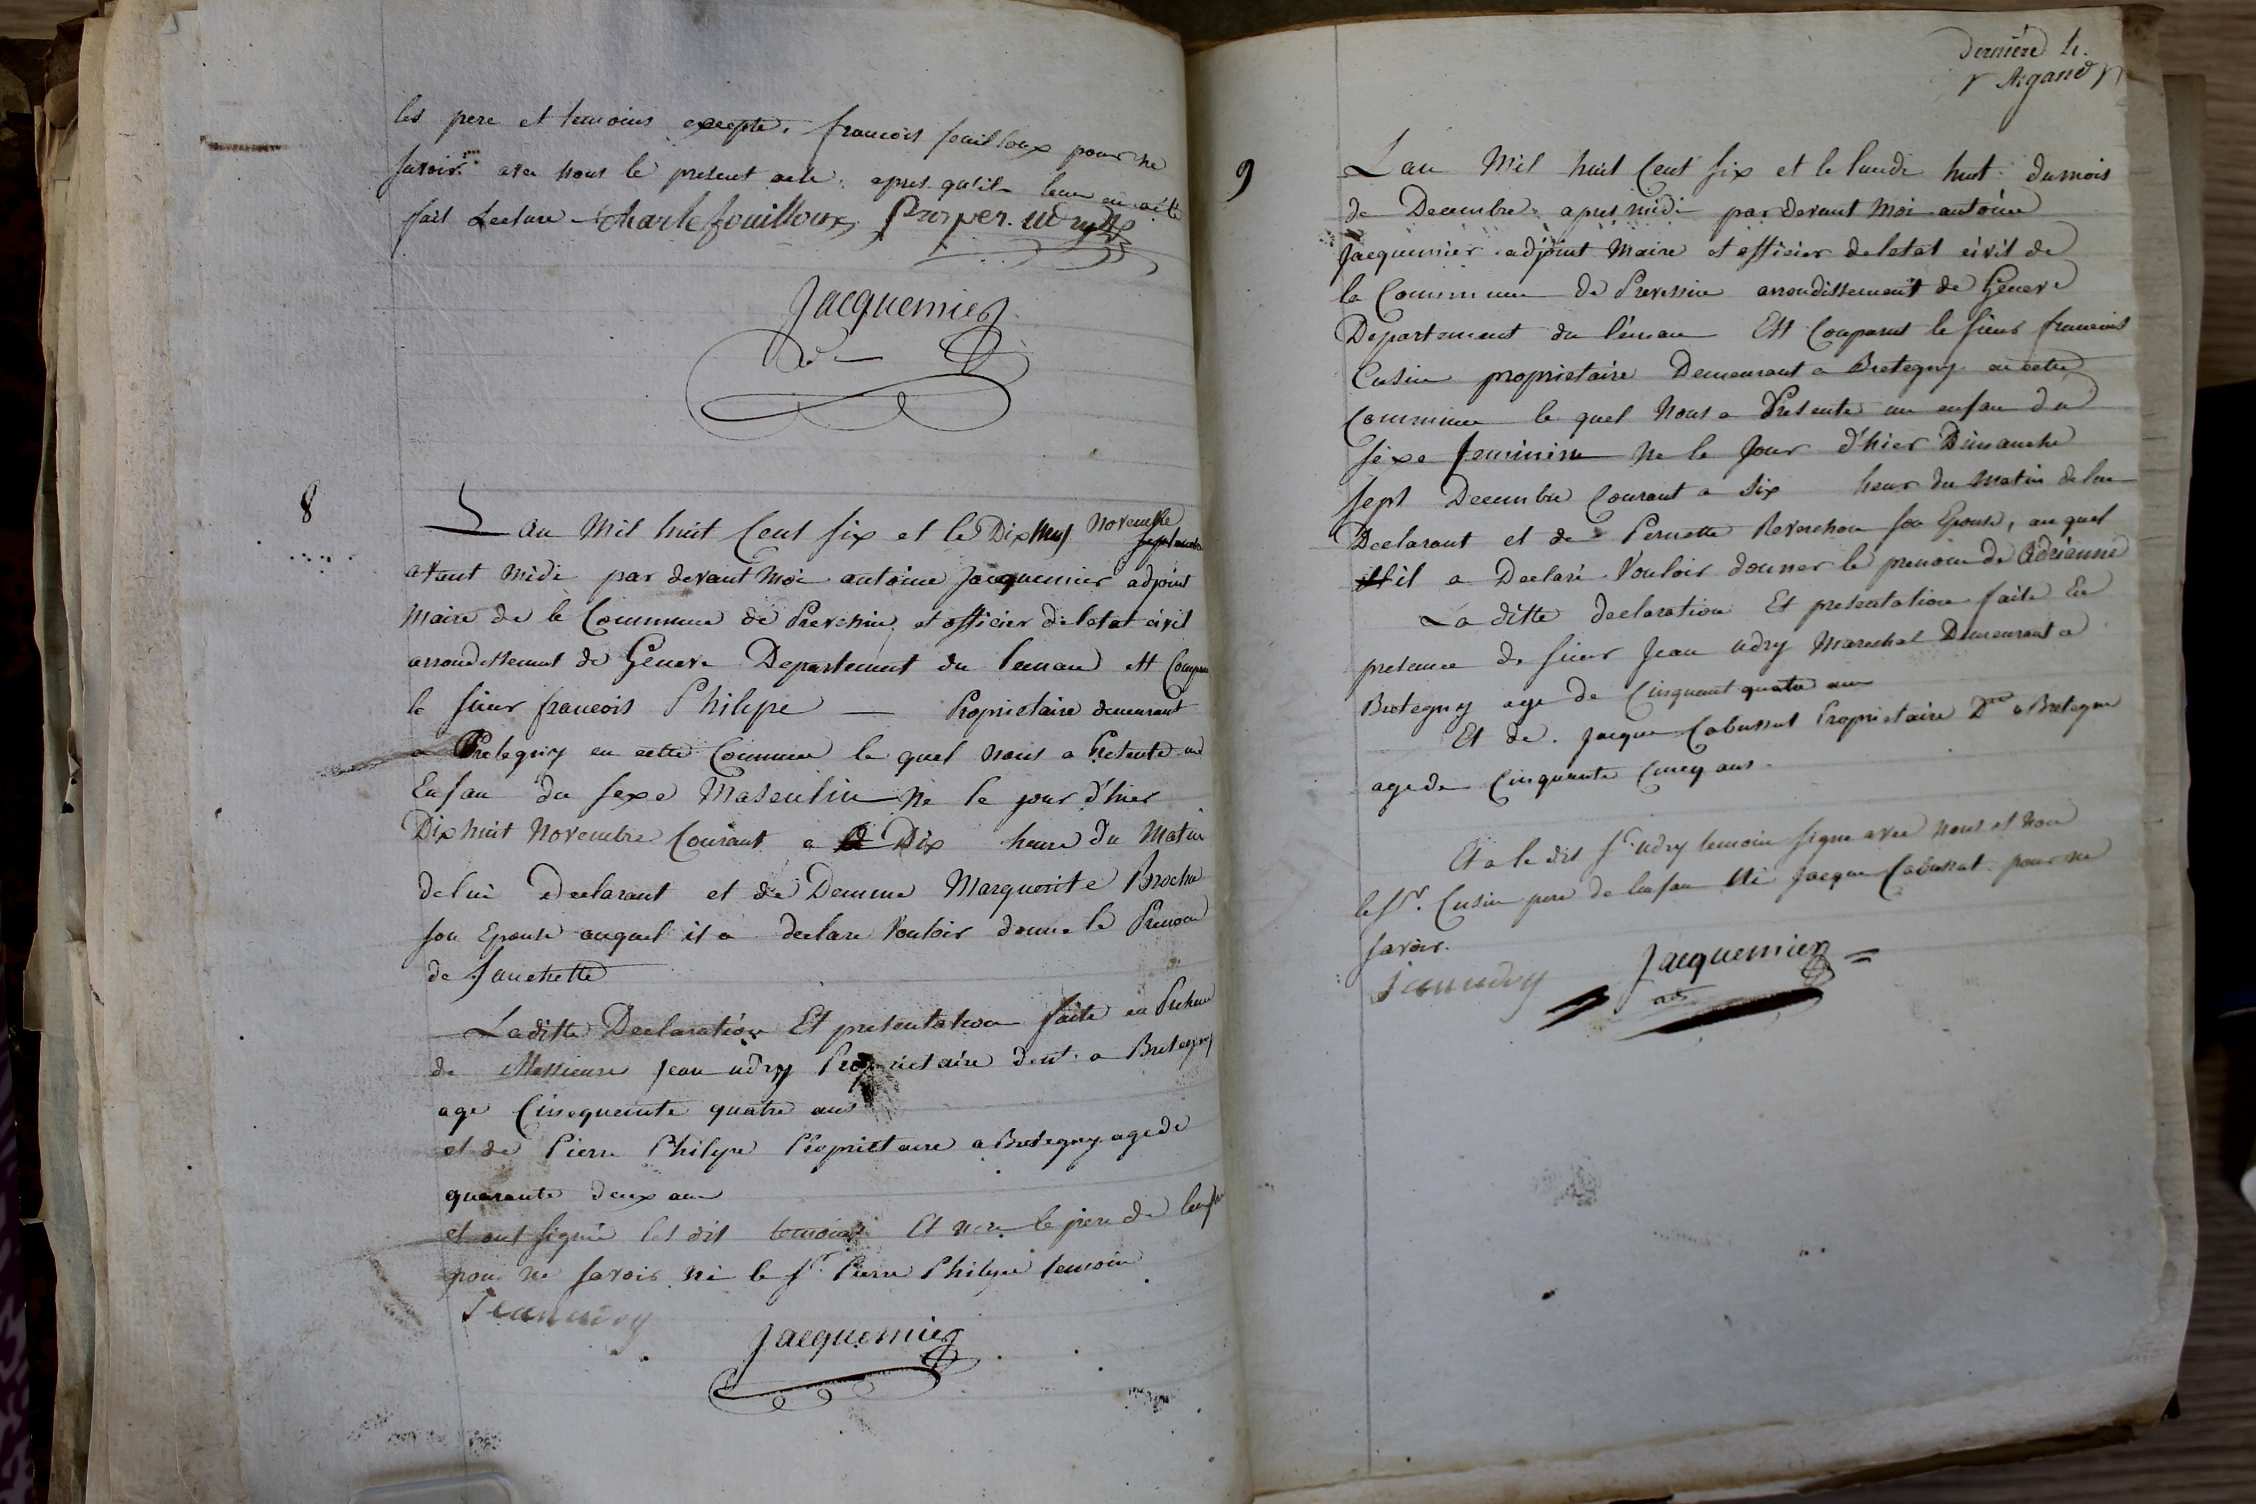 les pere et temoins excepté francois fouilloux pour ne
savoir avec nous le present acte apres qu'il leur en a été
fait Lecture charle fouilloux Prosper udry
Jacquemier
8
Lan Mil huit Cent six et le Dix neuf Novembre
septembre
avant midi par devant Moi antoine Jacquemier adjoint
Maire de la Commune de Prevessin et officier de letat civil
arrondissement de Geneve Departement du leman est Comparu
le sieur francois Philype — Proprietaire demeurant
a Bretegny en cette Commune le quel nous a Presenté un
Enfan du sexe Masculin ne le jour d'hier
Dix huit Novembre Courant a Dix heure du Matin
de lui declarant et de Demme Marguerite Brochu
son Epouse auquel il a declare Vouloir donne le Prenom
de fanchette
Laditte Declaration Et presentation faite en Presence
de Messieurs Jean udry Proprietaire dent a Bretegny
age Cinquente quatre ans
et de Pierre Philype Proprietaire a Bretegny age de
quarante deux ans
et ont signé les dit temoins Et non le pere de lenfan
pour ne savoir ni le sr Pierre Philype temoin
Jean udry
Jacquemier
derniere
9
Lan Mil huit Cent six et le lundi huit du mois
de Decembre apres midi par devant Moi antoine
Jacquemier adjoint Maire et officier de letat civil de
la Commune de Prevessin arrondissement de Geneve
Departement du léman Est Comparus le sieur francois
Cusin proprietaire Demeurant a Bretegny en cette
Commune le quel Nous a Presente un enfan du
sexe feminin ne le Jour d'hier Dimanche
sept Decembre Courant a six heur du Matin de lui
Declarant et de Pernette Reverchon son Epouse, au quel
il a Declaré Vouloir donner le prenom de Adrienne
La ditte declaration Et presentation faite En
presence de sieur Jean udry Marechal Demeurant a
Bretegny age de Cinquent quatre ans
Et de Jacque Cabussat Proprietaire Dnt a Bretegny
age de Cinquante Cinq ans
Et a le dit sr udry temoin signe avec nous et non
le sr. Cusin pere de lenfan Ni Jacque Cabussat pour ne
savoir.
Jean udry
Jacquemier